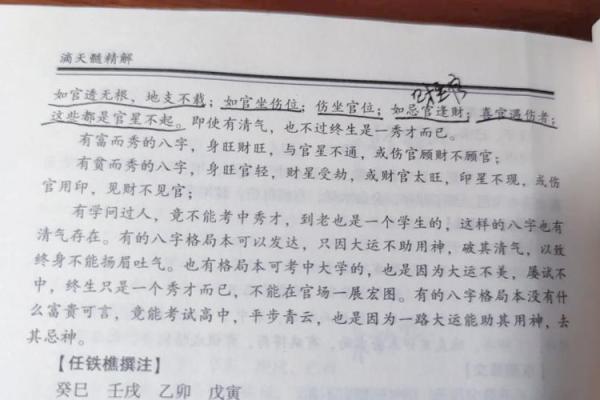 滴天髓精解
如官透无根，地支不载；如官坐伤位；伤坐官位；如忌官逢财；喜官遇伤者；
这些都是官星不起。即使有清气，也不过终生是一秀才而已。
有富而秀的八字，身旺财旺，与官星不通，或伤官顾财不顾官；
有贫而秀的八字，身旺官轻，财星受劫，或财官太旺，印星不现，或伤
官用印，见财不见官；
有学问过人，竟不能考中秀才，到老也是一个学生的，这样的八字也有
清气存在。有的八字格局本可以发达，只因大运不助用神，破其清气，以致
终身不能扬眉吐气。也有格局本可考中大学的，也是因为大运不美，屡试不
中，终生只是一个秀才而已，不能在官场一展宏图。有的八字格局本没有什
么富贵可言，竟能考试高中，平步青云，也是因为一路大运能助其用神，去
其忌神。
【任铁樵撰注】
癸巳 壬戌 乙卯 戊寅